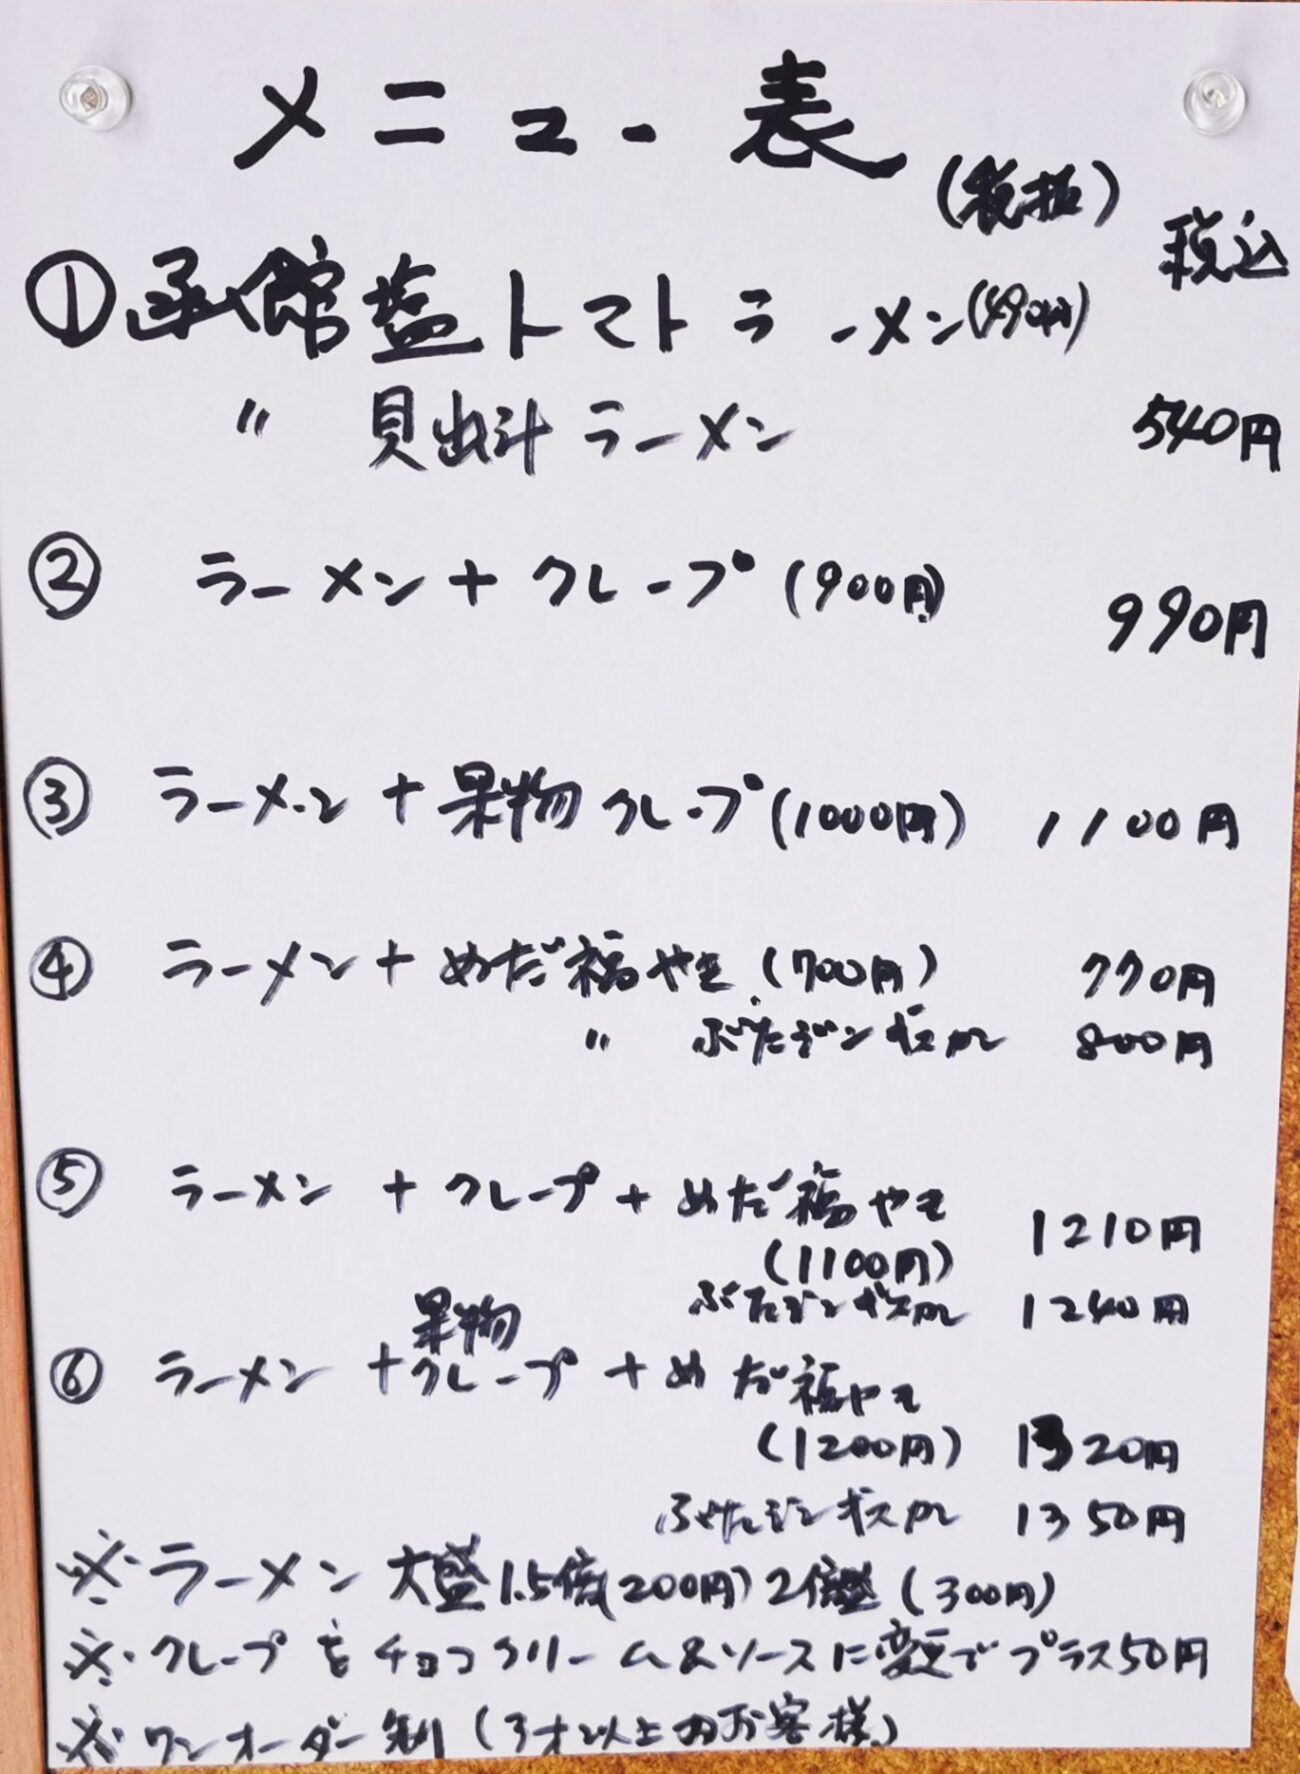 メニュー表
(税抜) 税込
①函館塩トマトラーメン(490円)
〃 貝出汁ラーメン 540円
② ラーメン+クレープ(900円) 990円
③ ラーメン+果物クレープ(1000円) 1100円
④ ラーメン+めだ福やき(700円) 770円
〃 ぶたジンギスカン 800円
⑤ ラーメン+クレープ+めだ福やき
(1100円) 1210円
ぶたジンギスカン 1240円
果物
⑥ ラーメン+クレープ+めだ福やき
(1200円) 1320円
ぶたジンギスカン 1350円
※ラーメン大盛1.5倍(200円)2倍盛(300円)
※クレープをチョコクリーム&ソースに変更でプラス50円
※ワンオーダー制(3才以上のお客様)